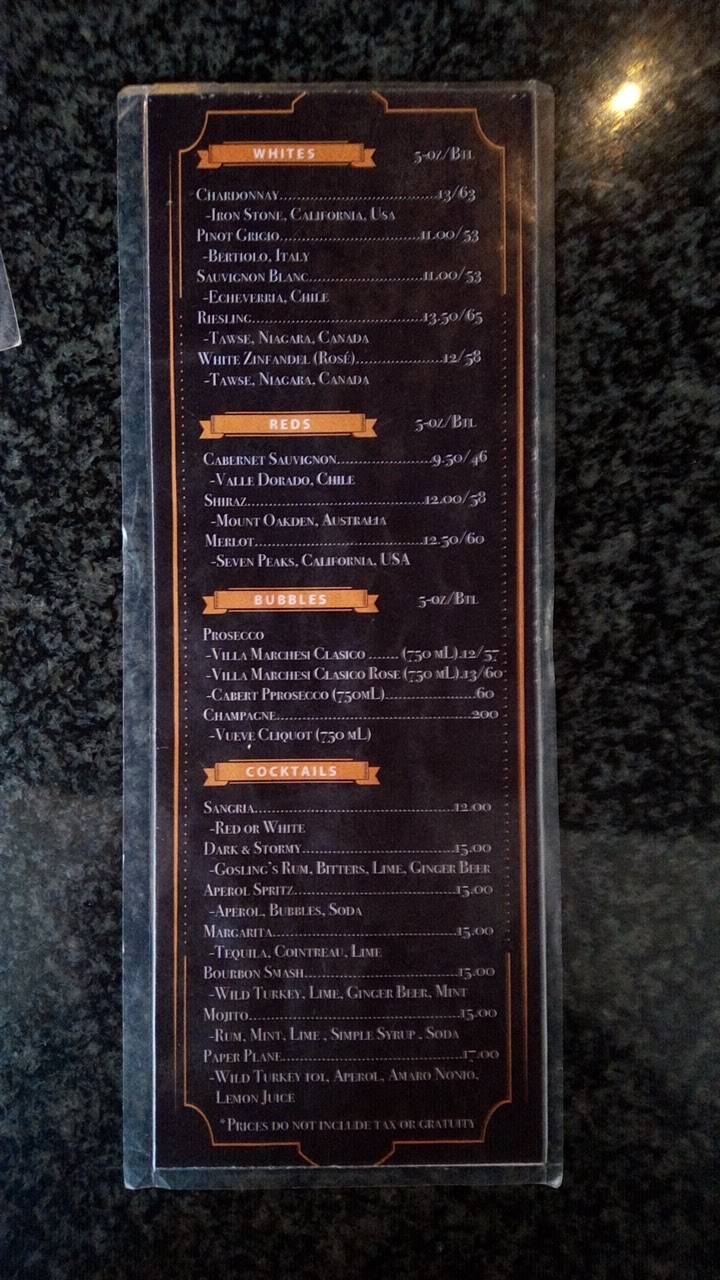 WHITES 5-oz/Btl
Chardonnay..............................13/63
-Iron Stone, California, Usa
Pinot Grigio...........................11.00/53
-Bertiolo, Italy
Sauvignon Blanc......................11.00/53
-Echeverria, Chile
Riesling.................................13.50/65
-Tawse, Niagara, Canada
White Zinfandel (Rosé)................12/58
-Tawse, Niagara, Canada
REDS 5-oz/Btl
Cabernet Sauvignon..................9.50/46
-Valle Dorado, Chile
Shiraz...................................12.00/58
-Mount Oakden, Australia
Merlot..................................12.50/60
-Seven Peaks, California, USA
BUBBLES 5-oz/Btl
Prosecco
-Villa Marchesi Clasico ....... (750 mL).12/57
-Villa Marchesi Clasico Rose (750 mL).13/60
-Cabert Pprosecco (750mL)..................60
Champagne.....................................200
-Vueve Cliquot (750 mL)
COCKTAILS
Sangria.......................................12.00
-Red or White
Dark & Stormy..............................15.00
-Gosling's Rum, Bitters, Lime, Ginger Beer
Aperol Spritz................................15.00
-Aperol, Bubbles, Soda
Margarita....................................15.00
-Tequila, Cointreau, Lime
Bourbon Smash.............................15.00
-Wild Turkey, Lime, Ginger Beer, Mint
Mojito.........................................15.00
-Rum, Mint, Lime , Simple Syrup , Soda
Paper Plane..................................17.00
-Wild Turkey 101, Aperol, Amaro Nonio,
Lemon Juice
*Prices do not include tax or gratuity